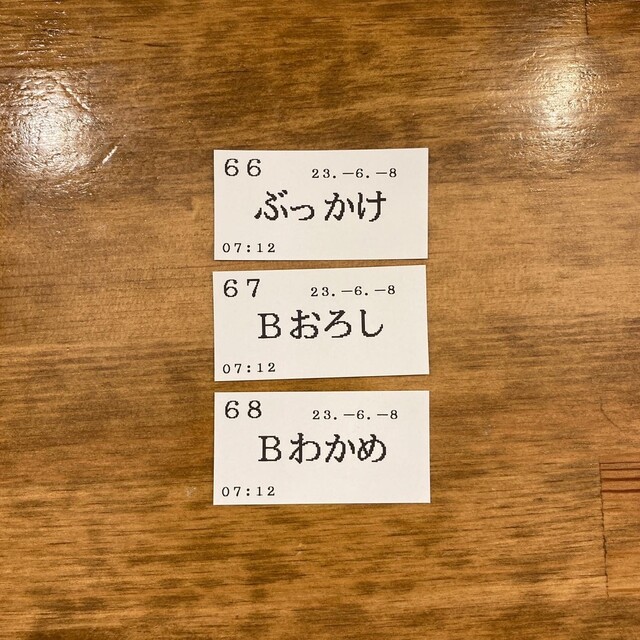 66 23.-6.-8
ぶっかけ
07:12
67 23.-6.-8
Bおろし
07:12
68 23.-6.-8
Bわかめ
07:12